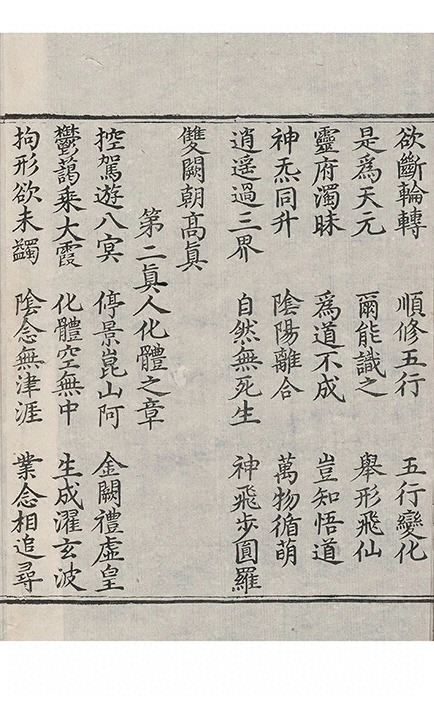 欲斷輪轉　順修五行　五行變化
是爲天元　爾能識之　舉形飛仙
靈府濁昧　爲道不成　豈知悟道
神炁同升　陰陽離合　萬物循萌
逍遥過三界　自然無死生　神飛步圓羅
雙闕朝髙眞
第二眞人化體之章
控駕遊八冥　停景崑山阿　金闕禮虛皇
鬱藹乘大霞　化體空無中　生成濯玄波
拘形欲未蠲　陰念無津涯　業念相追尋